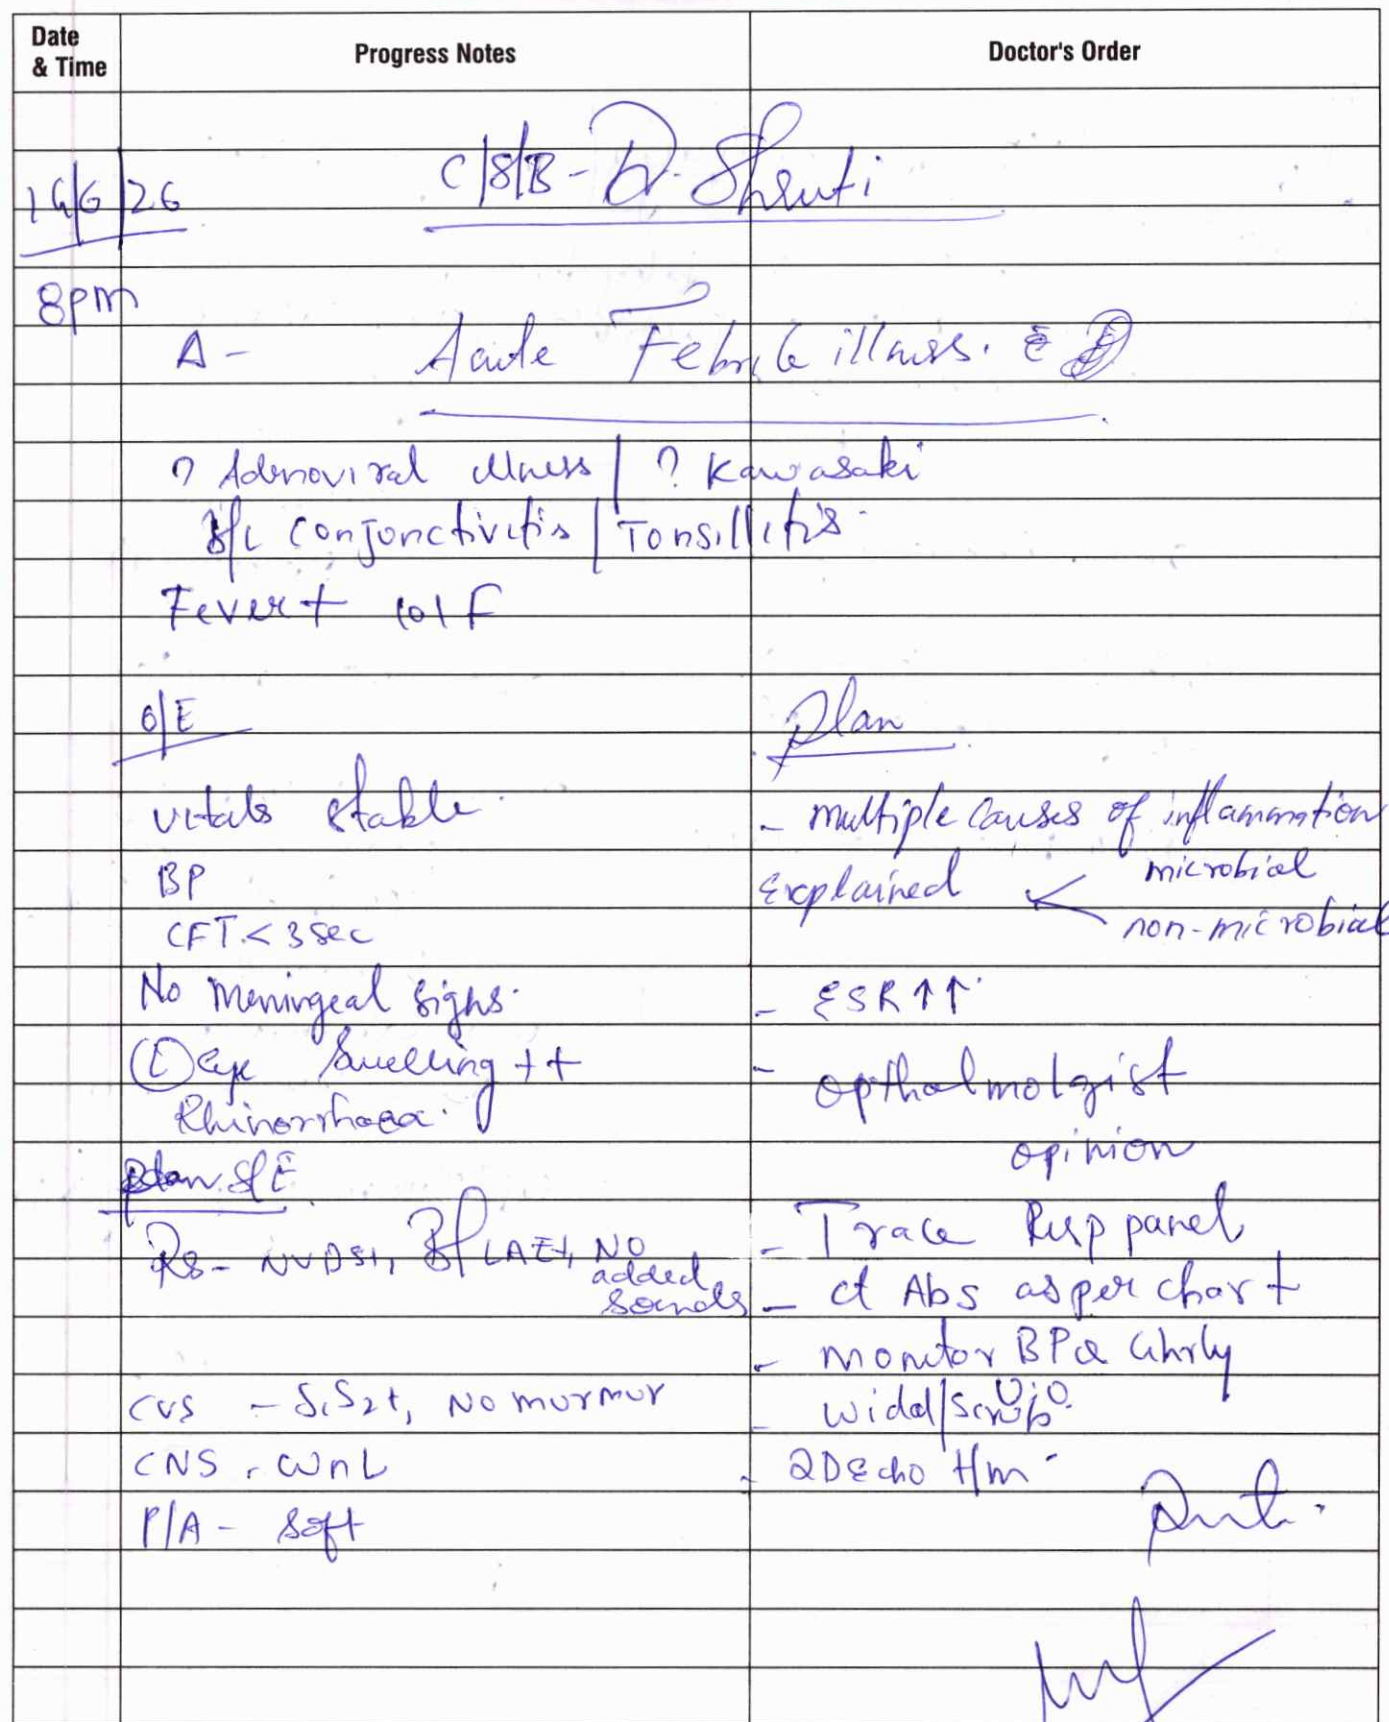 Date & Time
Progress Notes
Doctor's Order
C/S/B - Dr. Shruti
/6/26
8pm
A - Acute Febrile illness. c̄
? Adenoviral illness / ? Kawasaki
B/L Conjunctivitis / Tonsillitis.
Fever + 101 F
O/E
vitals stable.
BP
CFT. < 3 sec
No meningeal signs.
Ⓛ eye swelling ++
Rhinorrhoea.
S/E
RS - NVBS+, B/L AE+, NO added sounds
CVS - S1S2+, No murmur
CNS - WNL
P/A - Soft
Plan
- multiple causes of inflammation
Explained < microbial
non-microbial
- ESR ↑↑
- opthalmolgist
opinion
- Trace Resp panel
- ct Abs as per chart
- monitor BP 4hrly
- widal/
- 2D Echo